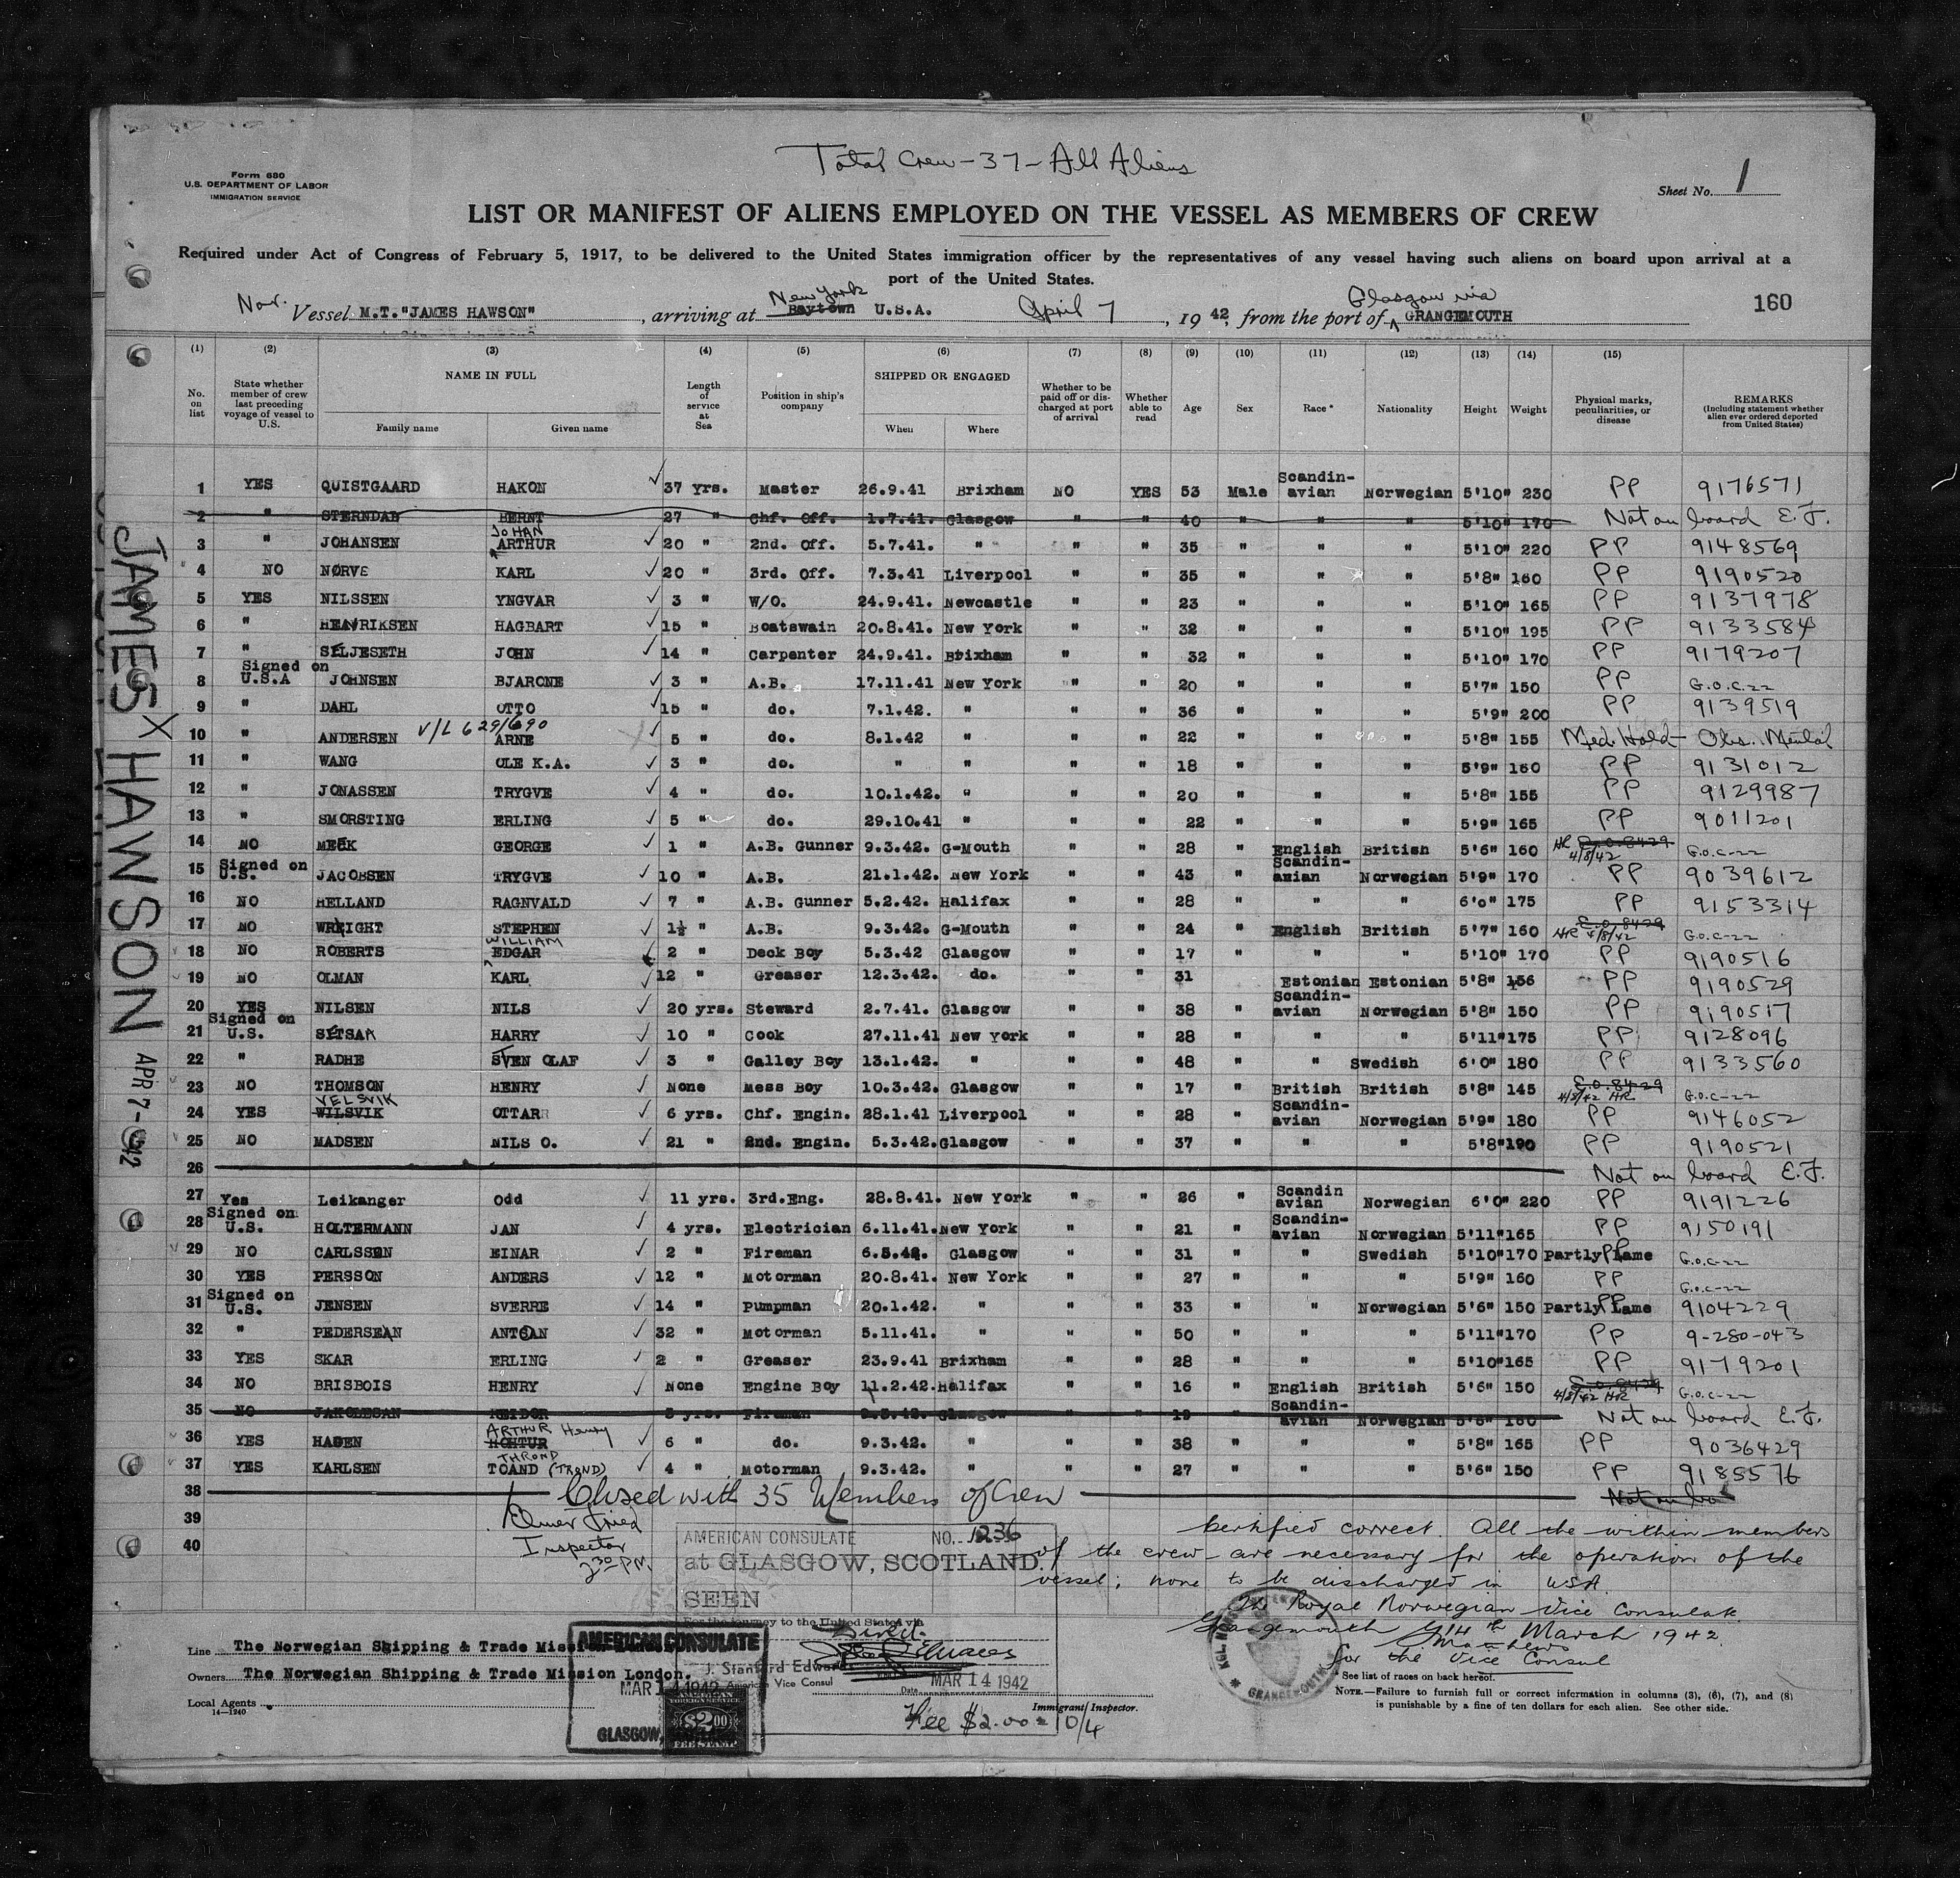 Total Crew - 37 - All Aliens
Form 680
U.S. DEPARTMENT OF LABOR
IMMIGRATION SERVICE
Sheet No. 1
LIST OR MANIFEST OF ALIENS EMPLOYED ON THE VESSEL AS MEMBERS OF CREW
Required under Act of Congress of February 5, 1917, to be delivered to the United States immigration officer by the representatives of any vessel having such aliens on board upon arrival at a
port of the United States.
Nor. Vessel M.T. "JAMES HAWSON", arriving at Baytown New York U.S.A. April 7, 1942, from the port of Glasgow via GRANGEMOUTH
160
(1) (2) (3) (4) (5) (6) (7) (8) (9) (10) (11) (12) (13) (14) (15)
No. on list
State whether member of crew last preceding voyage of vessel to U.S.
NAME IN FULL
Family name Given name
Length of service at Sea
Position in ship's company
SHIPPED OR ENGAGED
When Where
Whether to be paid off or discharged at port of arrival
Whether able to read
Age
Sex
Race *
Nationality
Height
Weight
Physical marks, peculiarities, or disease
REMARKS
(Including statement whether alien ever ordered deported from United States)
1 YES QUISTGAARD HAKON 37 yrs. Master 26.9.41 Brixham NO YES 53 Male Scandin-avian Norwegian 5'10" 230 PP 9176571
2 " STERNDAB BERNT 27 " Chf. Off. 1.7.41. Glasgow " " 40 " " " 5'10" 170 Not on board E.F.
3 " JOHANSEN JOHAN ARTHUR 20 " 2nd. Off. 5.7.41. " " " 35 " " " 5'10" 220 PP 9148569
4 NO NØRVE KARL 20 " 3rd. Off. 7.3.41 Liverpool " " 35 " " " 5'8" 160 PP 9190520
5 YES NILSSEN YNGVAR 3 " W/O. 24.9.41. Newcastle " " 23 " " " 5'10" 165 PP 9137978
6 " HENRIKSEN HAGBART 15 " Boatswain 20.8.41. New York " " 32 " " " 5'10" 195 PP 9133584
7 " SELJESETH JOHN 14 " Carpenter 24.9.41. Brixham " " 32 " " " 5'10" 170 PP 9179207
8 Signed on U.S.A JOHNSEN BJARONE 3 " A.B. 17.11.41 New York " " 20 " " " 5'7" 150 PP G.O.C-22
9 " DAHL OTTO 15 " do. 7.1.42. " " " 36 " " " 5'9" 200 PP 9139519
10 " ANDERSEN V/L 6291690 ARNE 5 " do. 8.1.42 " " " 22 " " " 5'8" 155 Med. Hold - Obs. Mental
11 " WANG OLE K.A. 3 " do. " " " " 18 " " " 5'9" 160 PP 9131012
12 " JONASSEN TRYGVE 4 " do. 10.1.42. " " " 20 " " " 5'8" 155 PP 9129987
13 " SMORSTING ERLING 5 " do. 29.10.41 " " " 22 " " " 5'9" 165 PP 9011201
14 NO MEEK GEORGE 1 " A.B. Gunner 9.3.42. G-Mouth " " 28 " English British 5'6" 160 E.O. 8429 HR 4/8/42 G.O.C-22
15 Signed on U.S. JACOBSEN TRYGVE 10 " A.B. 21.1.42. New York " " 43 " Scandin-avian Norwegian 5'9" 170 PP 9039612
16 NO HELLAND RAGNVALD 7 " A.B. Gunner 5.2.42. Halifax " " 28 " " " 6'0" 175 PP 9153314
17 NO WREIGHT STEPHEN 1½ " A.B. 9.3.42. G-Mouth " " 24 " English British 5'7" 160 E.O. 8429 HR 4/8/42 G.O.C-22
18 NO ROBERTS WILLIAM EDGAR 2 " Deck Boy 5.3.42 Glasgow " " 17 " " " 5'10" 170 PP 9190516
19 NO OLMAN KARL 12 " Greaser 12.3.42. do. " " 31 Estonian Estonian 5'8" 156 PP 9190529
20 YES NILSEN NILS 20 yrs. Steward 2.7.41. Glasgow " " 38 " Scandin-avian Norwegian 5'8" 150 PP 9190517
21 Signed on U.S. HARRY 10 " Cook 27.11.41 New York " " 28 " " " 5'11" 175 PP 9128096
22 " RADHE SVEN OLAF 3 " Galley Boy 13.1.42. " " " 48 " " Swedish 6'0" 180 PP 9133560
23 NO THOMSON HENRY None Mess Boy 10.3.42. Glasgow " " 17 " British British 5'8" 145 E.O. 8429 4/8/42 HR. G.O.C-22
24 YES WILSVIK VELSVIK OTTAR 6 yrs. Chf. Engin. 28.1.41 Liverpool " " 28 " Scandin-avian Norwegian 5'9" 180 PP 9146052
25 NO MADSEN NILS O. 21 " 2nd. Engin. 5.3.42. Glasgow " " 37 " " " 5'8" 190 PP 9190521
26 Not on board E.F.
27 Yes Leikanger Odd 11 yrs. 3rd.Eng. 28.8.41. New York " " 26 " Scandin avian Norwegian 6'0" 220 PP 9191226
28 Signed on U.S. HOLTERMANN JAN 4 yrs. Electrician 6.11.41. New York " " 21 " Scandin-avian Norwegian 5'11" 165 PP 9150191
29 NO CARLSSON EINAR 2 " Fireman 6.3.42. Glasgow " " 31 " " Swedish 5'10" 170 Partly Lame PP G.O.C-22
30 YES PERSSON ANDERS 12 " Motorman 20.8.41. New York " " 27 " " " 5'9" 160 PP G.O.C-22
31 Signed on U.S. JENSEN SVERRE 14 " Pumpman 20.1.42. " " " 33 " " Norwegian 5'6" 150 Partly Lame PP 9104229
32 " PEDERSEN ANTON 32 " Motorman 5.11.41. " " " 50 " " " 5'11" 170 PP 9-280-043
33 YES SKAR ERLING 2 " Greaser 23.9.41 Brixham " " 28 " " " 5'10" 165 PP 9179201
34 NO BRISBOIS HENRY None Engine Boy 11.2.42. Halifax " " 16 " English British 5'6" 150 E.O. 8429 4/8/42 HR G.O.C-22
35 NO REIDOR yrs. Fireman Glasgow " " 19 " Scandin-avian Norwegian Not on board E.F.
36 YES HAGEN ARTHUR Henry 6 " do. 9.3.42. " " " 38 " " " 5'8" 165 PP 9036429
37 YES KARLSEN THROND TOAND (TROND) 4 " Motorman 9.3.42. " " " 27 " " " 5'6" 150 PP 9185576
38 Closed with 35 Members of Crew
39
40
Elmer Fried
Inspector
2:30 PM.
Certified correct. All the within members
of the crew are necessary for the operation of the
vessel; none to be discharged in USA.
The Royal Norwegian Vice Consulate
Grangemouth 14th March 1942.
for the Vice Consul
AMERICAN CONSULATE NO. 1236
at GLASGOW, SCOTLAND.
SEEN
For the journey to the United States via
Direct.
J. Stanford Edwards
American Vice Consul
Date MAR 14 1942
Fee $2.00 = 10/4
AMERICAN CONSULATE
MAR 14 1942
GLASGOW,
$2.00
FEE STAMP
Line The Norwegian Shipping & Trade Mission
Owners The Norwegian Shipping & Trade Mission London.
Local Agents
14—1240
Immigrant Inspector.
GRANGEMOUTH
* See list of races on back hereof.
NOTE.—Failure to furnish full or correct information in columns (3), (6), (7), and (8)
is punishable by a fine of ten dollars for each alien. See other side.
JAMES HAWSON
APR 7-1942